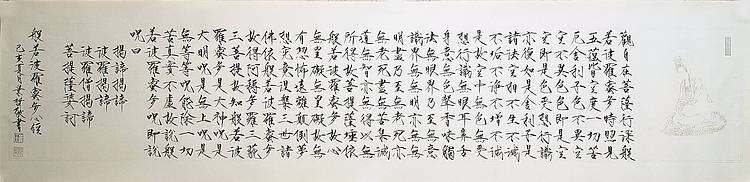 觀自在菩薩行深般
若波羅蜜多時照見
五蘊皆空度一切苦
厄舍利子色不異空
空不異色色即是空
空即是色受想行識
亦復如是舍利子是
諸法空相不生不滅
不垢不淨不增不減
是故空中無色無受
想行識無眼耳鼻舌
身意無色聲香味觸
法無眼界乃至無意
識界無無明亦無無
明盡乃至無老死亦
無老死盡無苦集滅
道無智亦無得以無
所得故菩提薩埵依
般若波羅蜜多故心
無罣礙無罣礙故無
有恐怖遠離顛倒夢
想究竟涅槃三世諸
佛依般若波羅蜜多
故得阿耨多羅三藐
三菩提故知般若波
羅蜜多是大神呪是
大明呪是無上呪是
無等等呪能除一切
苦真實不虛故說般
若波羅蜜多呪即說
呪曰
揭諦揭諦
波羅揭諦
波羅僧揭諦
菩提薩婆訶
般若波羅蜜多心經